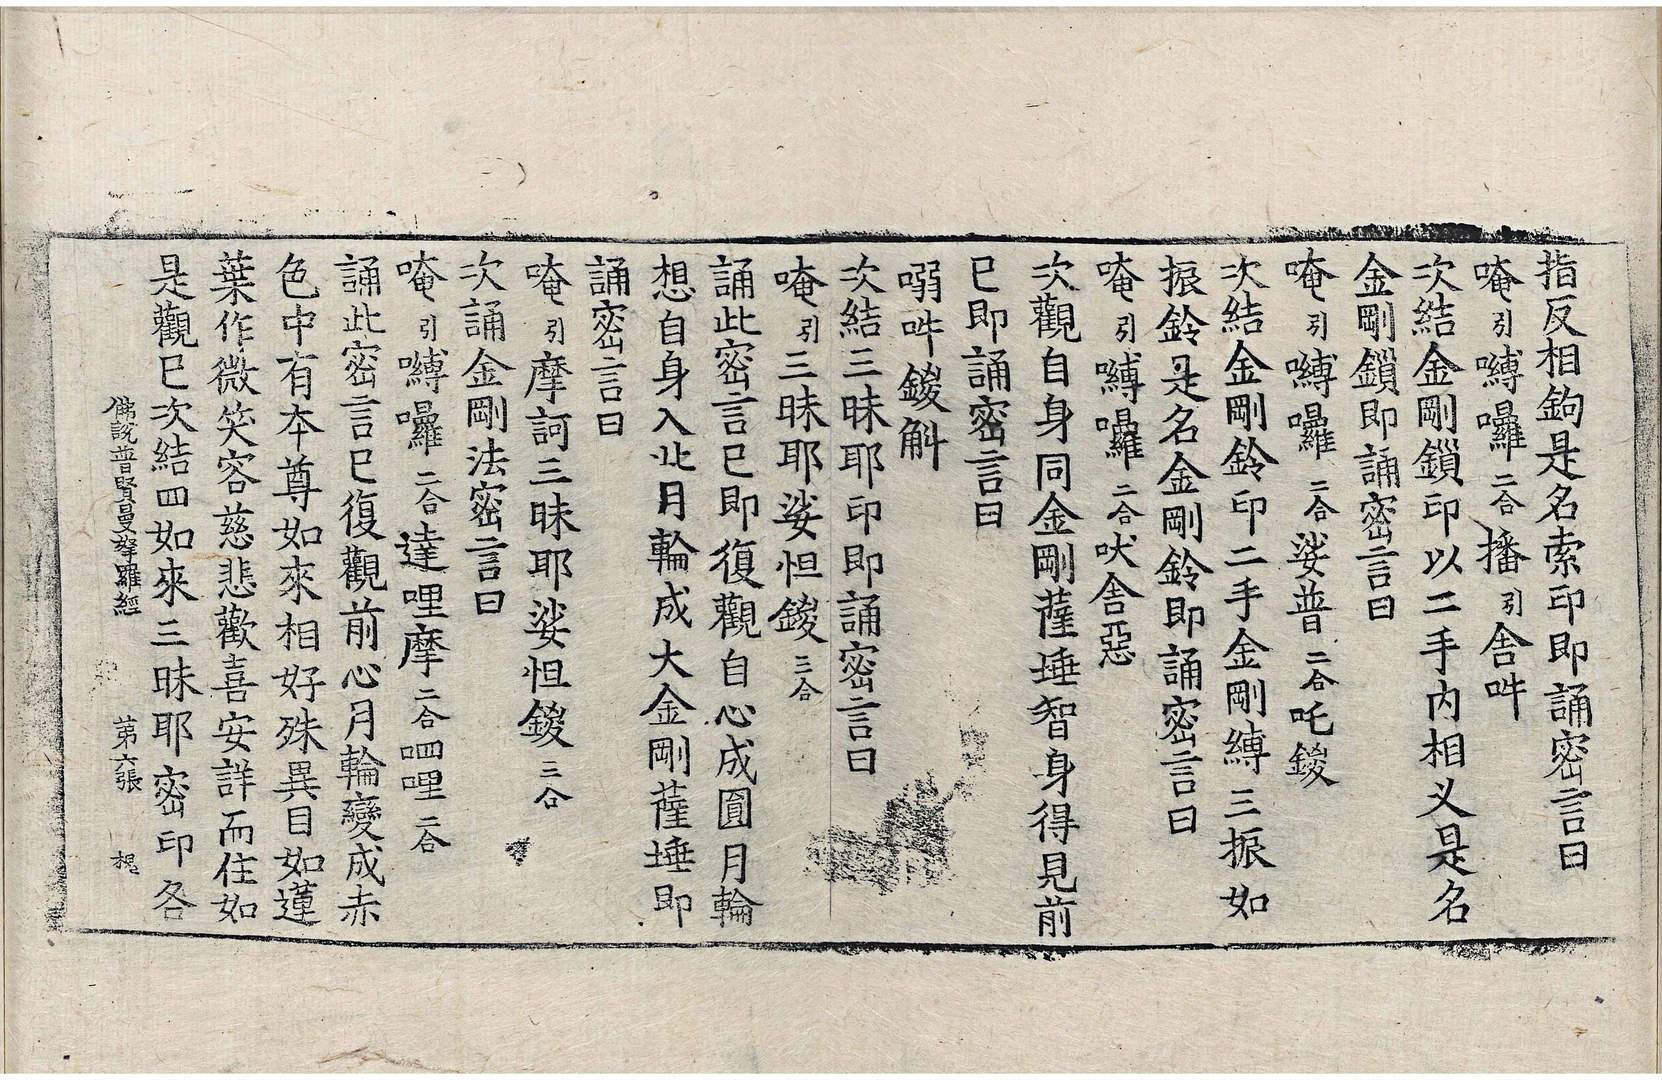 指反相鉤是名索印即誦密言曰
唵引嚩囉二合播引舍吽
次結金剛鎖印以二手內相叉是名
金剛鎖即誦密言曰
唵引嚩囉二合娑普二合吒鍐
次結金剛鈴印二手金剛縛三振如
振鈴是名金剛鈴即誦密言曰
唵引嚩囉二合吠舍惡
次觀自身同金剛薩埵智身得見前
已即誦密言曰
弱吽鍐斛
次結三昧耶印即誦密言曰
唵引三昧耶娑怛鍐三合
誦此密言已即復觀自心成圓月輪
想自身入此月輪成大金剛薩埵即
誦密言曰
唵引摩訶三昧耶娑怛鍐三合
次誦金剛法密言曰
唵引嚩囉二合達哩摩二合呬哩二合
誦此密言已復觀前心月輪變成赤
色中有本尊如來相好殊異目如蓮
葉作微笑容慈悲歡喜安詳而住如
是觀已次結四如來三昧耶密印各
佛說普賢曼拏羅經 第六張 槐